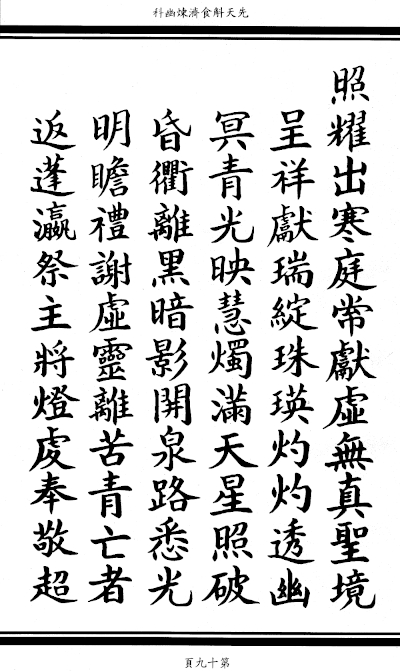 先天斛食濟煉幽科
照耀出寒庭常獻虛無真聖境
呈祥獻瑞綻珠瑛灼灼透幽
冥青光映慧燭滿天星照破
昏衢離黑暗影開泉路悉光
明瞻禮謝虛靈離苦青亡者
返蓬瀛祭主將燈虔奉敬超
第十九頁